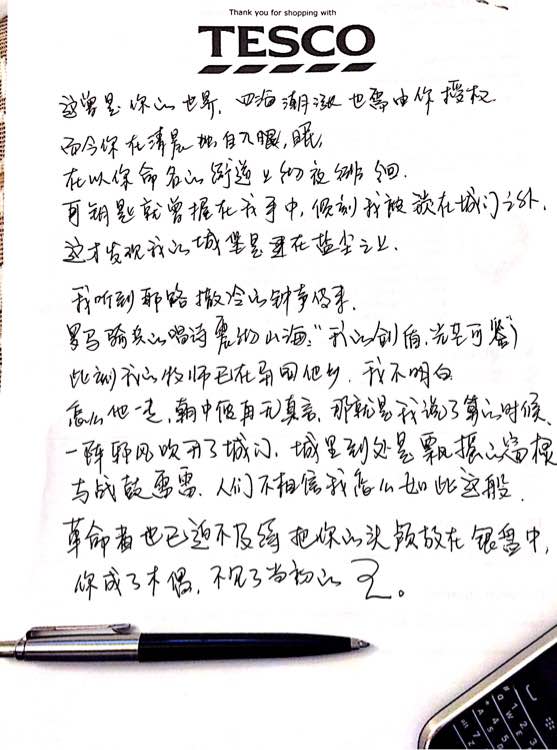 Thank you for shopping with
TESCO
这曾是你的世界，四海潮涨也需由你授权
而今你在清晨独自入眠，眠，
在以你命名的街道上彻夜徘徊.
可钥匙就曾握在我手中，倾刻我被放在城门之外.
这才发现我的城堡是建在盐尘之上.
我听到耶路撒冷的钟声传来.
罗马骑兵的唱诗震彻山海:"我的剑盾,光芒可鉴"
此刻我的牧师已在异国他乡. 我不明白
怎么他一走, 朝中便再无真言, 那就是我说了算的时候.
一阵邪风吹开了城门. 城里到处是飘摇的窗棂
与战鼓雷雷. 人们不相信我怎么如此这般.
革命者也已迫不及待 把你的头颅放在银盘中,
你成了木偶, 不见了当初的王。